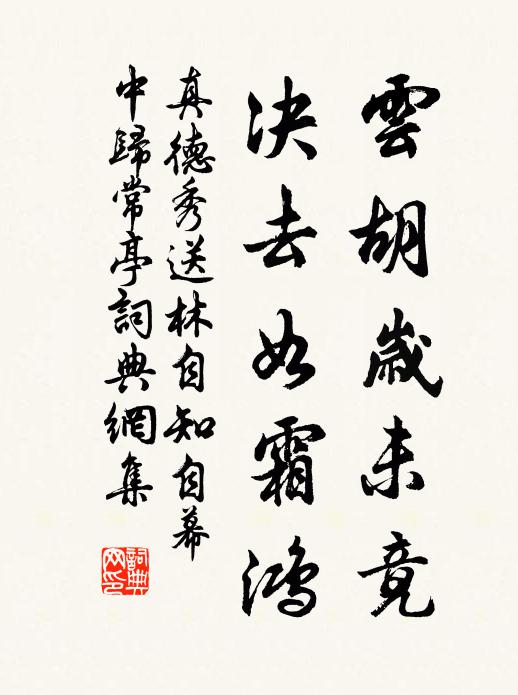 雲胡歲未竟
決去如霜鴻
真德秀送林自知自幕
中歸常亭詞典網集
詞典網印